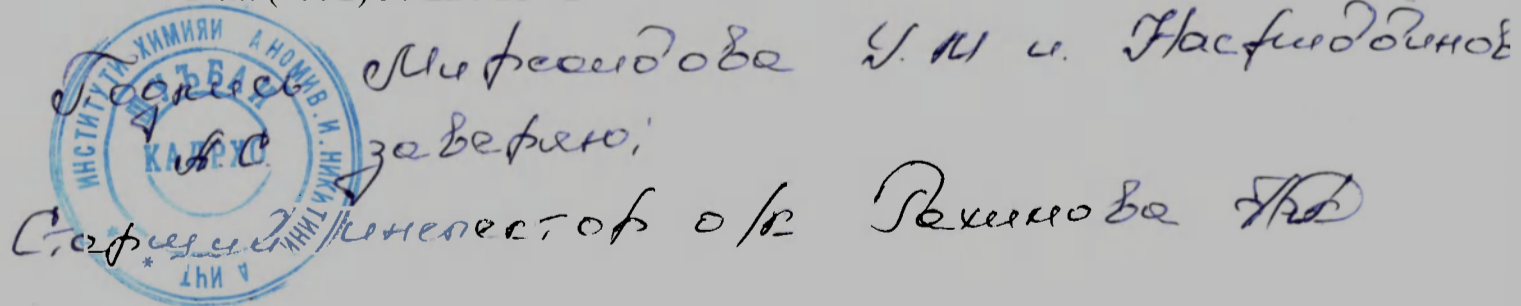 Подпись Мирсаидова У.М и. Насриддинов
А.С. заверяю:
Старший инспектор о/к Рахимова
ИНСТИТУТИ ХИМИЯИ
В.И. НИКИТИНИ
А И ҶТ
ШӮЪБАИ
КАДРҲО